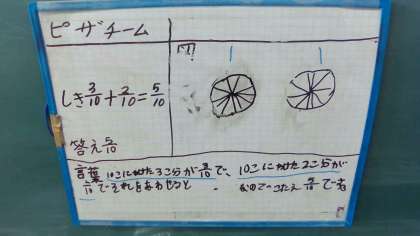 ピザチーム
図
1 1
しき 3/10+2/10=5/10
答え 5/10
言葉 10こにわけた3こぶんが3/10で、10こにわけた2こぶんが
2/10でそれをあわせると なのでこたえ 5/10です